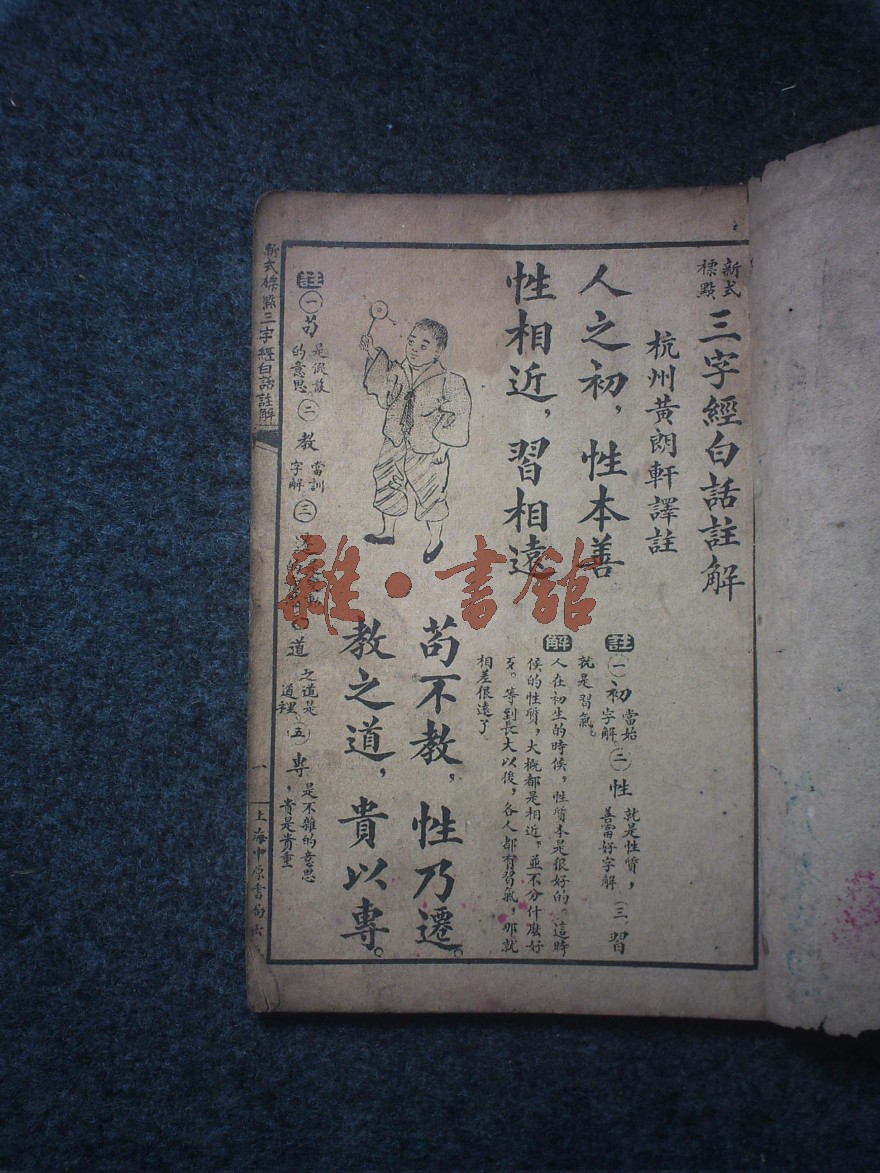 新式標點
三字經白話註解
杭州黃朗軒譯註
人之初，性本善
性相近，習相遠
註㊀初當始字解㊁性就是性質，善當好字解㊂習
就是習氣。
解
人在初生的時候，性質本是很好的。這時
候的性質，大概都是相近，並不分什麼好
歹。等到長大以後，各人都有習氣，那就
相差很遠了。
苟不教，性乃遷。
教之道，貴以專。
註㊀苟是假設的意思㊁教當訓字解㊂
道之道是道裡。㊄專是不雜的意思，貴是貴重
新式標點三字經白話註解
一
上海中原書局出
雜·書館